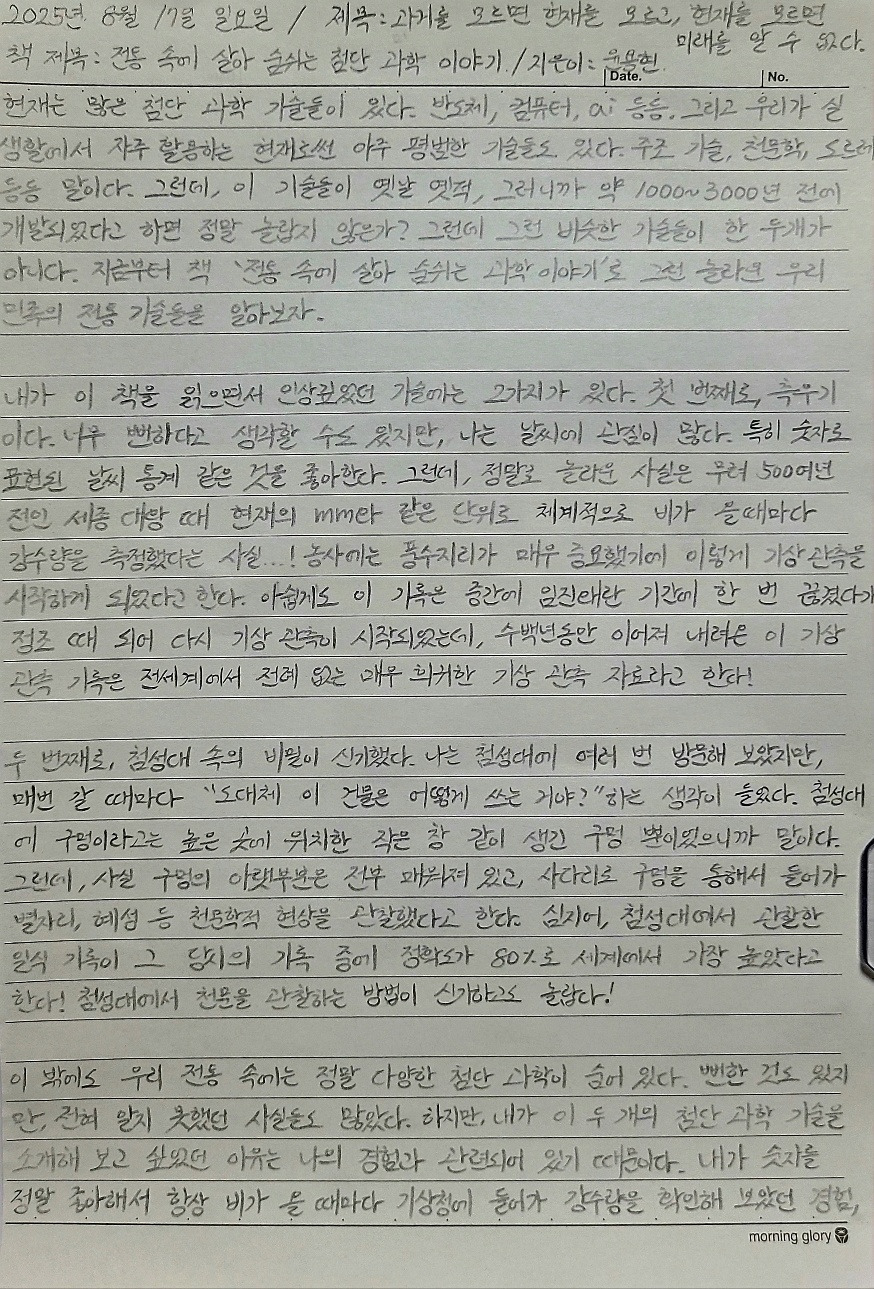 2025년 8월 17일 일요일 / 제목: 과거를 모르면 현재를 모르고, 현재를 모르면
미래를 알 수 없다.
책 제목: 전통 속에 살아 숨쉬는 첨단 과학 이야기. / 지은이: 윤용현
Date. No.
현재는 많은 첨단 과학 기술들이 있다. 반도체, 컴퓨터, ai 등등. 그리고 우리가 실
생활에서 자주 활용하는 현재로썬 아주 평범한 기술들도 있다. 주조 기술, 천문학, 도르레
등등 말이다. 그런데, 이 기술들이 옛날 옛적, 그러니까 약 1000~3000년 전에
개발되었다고 하면 정말 놀랍지 않은가? 그런데 그런 비슷한 기술들이 한 두개가
아니다. 지금부터 책 '전통 속에 살아 숨쉬는 과학 이야기'로 그런 놀라운 우리
민족의 전통 기술들을 알아보자.
내가 이 책을 읽으면서 인상깊었던 기술에는 2가지가 있다. 첫 번째로, 측우기
이다. 너무 뻔하다고 생각할 수도 있지만, 나는 날씨에 관심이 많다. 특히 숫자로
표현된 날씨 통계 같은 것을 좋아한다. 그런데, 정말로 놀라운 사실은 무려 500여년
전인 세종 대왕 때 현재의 mm와 같은 단위로 체계적으로 비가 올때마다
강수량을 측정했다는 사실...! 농사에는 풍수지리가 매우 중요했기에 이렇게 기상 관측을
시작하게 되었다고 한다. 아쉽게도 이 기록은 중간에 임진왜란 기간에 한 번 끊겼다가
정조 때 되어 다시 기상 관측이 시작되었는데, 수백년동안 이어져 내려온 이 기상
관측 기록은 전세계에서 전례 없는 매우 희귀한 기상 관측 자료라고 한다!
두 번째로, 첨성대 속의 비밀이 신기했다. 나는 첨성대에 여러 번 방문해 보았지만,
매번 갈 때마다 "도대체 이 건물은 어떻게 쓰는 거야?" 하는 생각이 들었다. 첨성대
에 구멍이라고는 높은 곳에 위치한 작은 창 같이 생긴 구멍 뿐이었으니까 말이다.
그런데, 사실 구멍의 아랫부분은 전부 매워져 있고, 사다리로 구멍을 통해서 들어가
별자리, 혜성 등 천문학적 현상을 관찰했다고 한다. 심지어, 첨성대에서 관찰한
일식 기록이 그 당시의 기록 중에 정확도가 80%로 세계에서 가장 높았다고
한다! 첨성대에서 천문을 관찰하는 방법이 신기하고도 놀랍다!
이 밖에도 우리 전통 속에는 정말 다양한 첨단 과학이 숨어 있다. 뻔한 것도 있지
만, 전혀 알지 못했던 사실들도 많았다. 하지만, 내가 이 두 개의 첨단 과학 기술을
소개해 보고 싶었던 이유는 나의 경험과 관련되어 있기 때문이다. 내가 숫자를
정말 좋아해서 항상 비가 올 때마다 기상청에 들어가 강수량을 확인해 보았던 경험,
morning glory